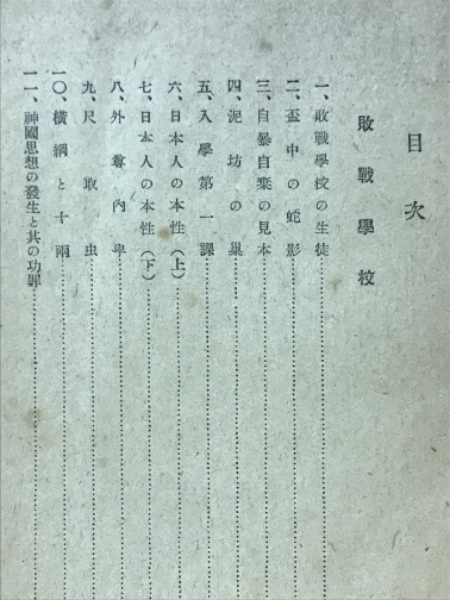 目次
敗戰學校
一、敗戰學校の生徒
二、盃中の蛇影
三、自暴自棄の見本
四、泥坊の巣
五、入學第一課
六、日本人の本性(上)
七、日本人の本性(下)
八、外尊內卑
九、尺取虫
一〇、橫綱と十兩
一一、神國思想の發生と其の功罪